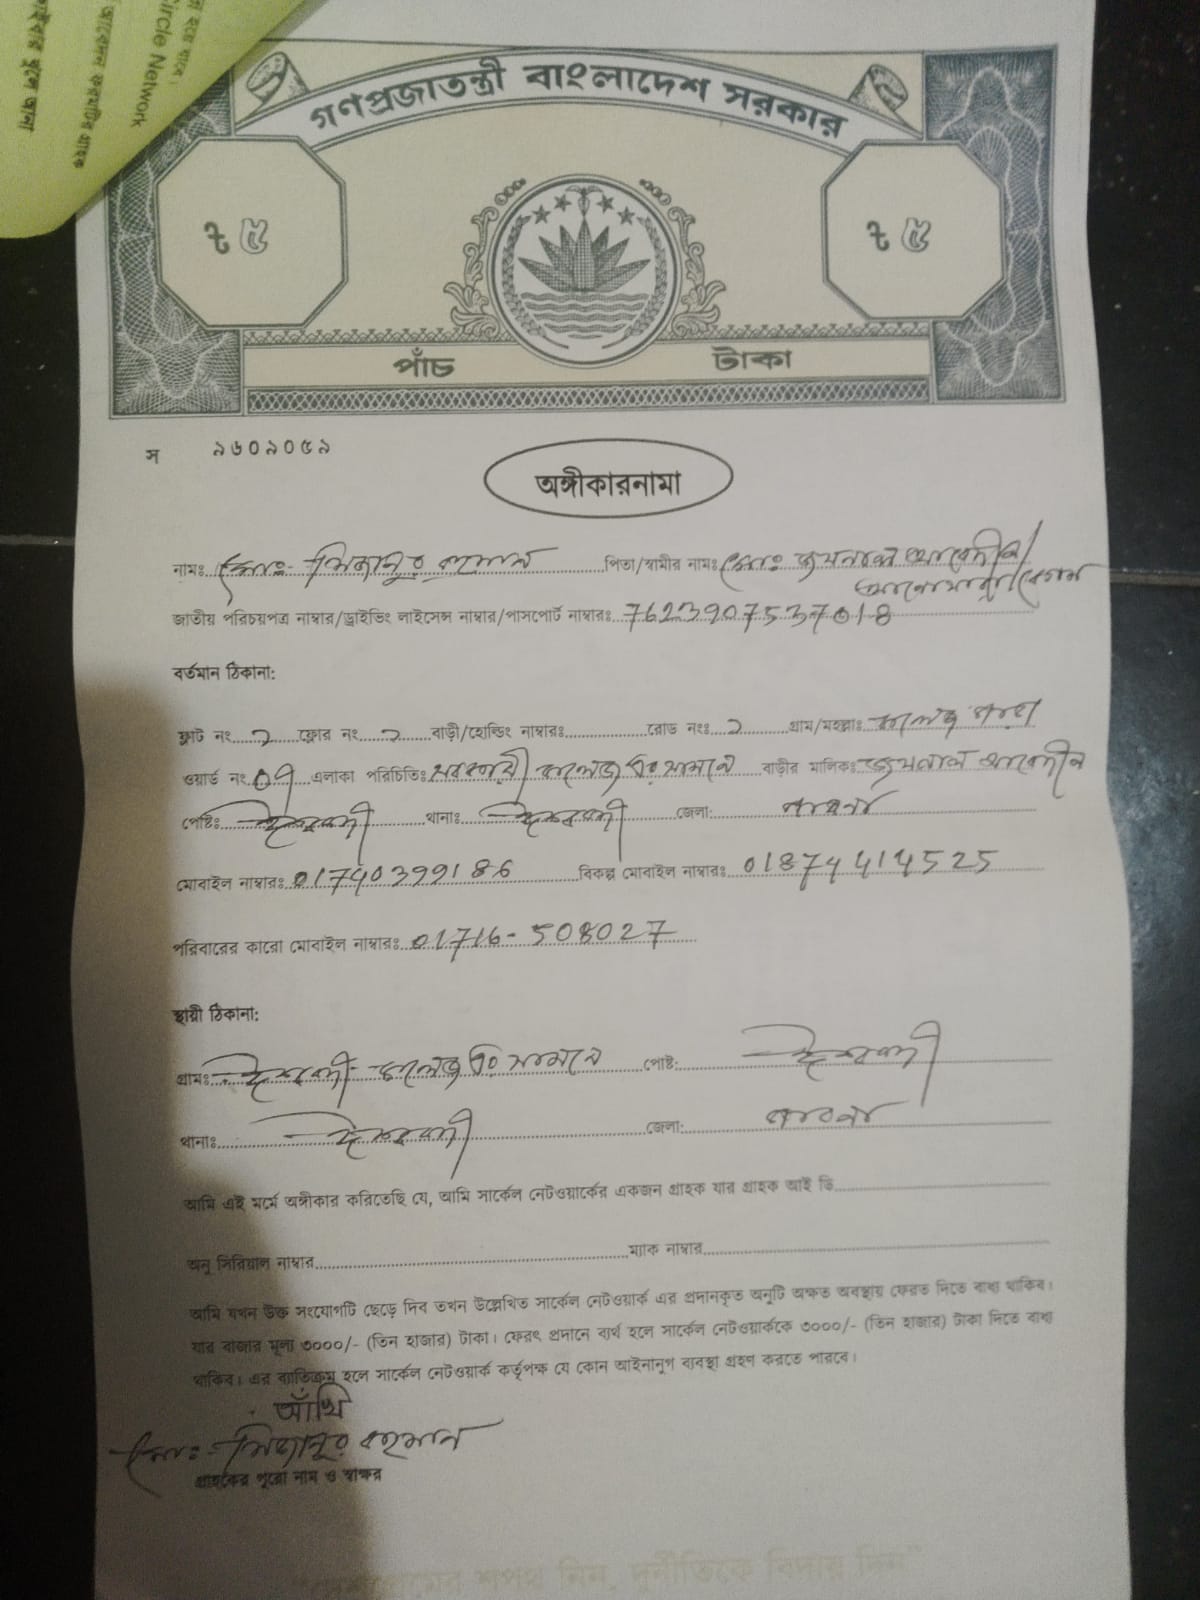 Circle Network
গণপ্রজাতন্ত্রী বাংলাদেশ সরকার
৳ ৫ ৳ ৫
পাঁচ টাকা
স ৯৬০৯০৫৯
অঙ্গীকারনামা
নামঃ মোঃ- মিজানুর রহমান পিতা/স্বামীর নামঃ মোঃ জয়নাল আবেদীন/
আনোয়ারা বেগম
জাতীয় পরিচয়পত্র নাম্বার/ড্রাইভিং লাইসেন্স নাম্বার/পাসপোর্ট নাম্বারঃ 7623907537018
বর্তমান ঠিকানা:
ফ্লাট নং ২ ফ্লোর নং ২ বাড়ী/হোল্ডিং নাম্বারঃ রোড নংঃ ২ গ্রাম/মহল্লাঃ কলেজ পাড়া
ওয়ার্ড নং 09 এলাকা পরিচিতিঃ সরকারী কলেজ এর সামনে বাড়ীর মালিকঃ জয়নাল আবেদীন
পোষ্টঃ ঈশ্বরদী থানাঃ ঈশ্বরদী জেলা: পাবনা
মোবাইল নাম্বারঃ 01740399186 বিকল্প মোবাইল নাম্বারঃ 01874414525
পরিবারের কারো মোবাইল নাম্বারঃ 01716-508027
স্থায়ী ঠিকানা:
গ্রামঃ ঈশ্বরদী কলেজ এর সামনে পোষ্ট: ঈশ্বরদী
থানাঃ ঈশ্বরদী জেলা: পাবনা
আমি এই মর্মে অঙ্গীকার করিতেছি যে, আমি সার্কেল নেটওয়ার্কের একজন গ্রাহক যার গ্রাহক আই ডি
অনু সিরিয়াল নাম্বার ম্যাক নাম্বার
আমি যখন উক্ত সংযোগটি ছেড়ে দিব তখন উল্লেখিত সার্কেল নেটওয়ার্ক এর প্রদানকৃত অনুটি অক্ষত অবস্থায় ফেরত দিতে বাধ্য থাকিব।
যার বাজার মূল্য ৩০০০/- (তিন হাজার) টাকা। ফেরৎ প্রদানে ব্যর্থ হলে সার্কেল নেটওয়ার্ককে ৩০০০/- (তিন হাজার) টাকা দিতে বাধ্য
থাকিব। এর ব্যতিক্রম হলে সার্কেল নেটওয়ার্ক কর্তৃপক্ষ যে কোন আইনানুগ ব্যবস্থা গ্রহণ করতে পারবে।
আঁখি
মোঃ- মিজানুর রহমান
গ্রাহকের পুরো নাম ও স্বাক্ষর
"দেশপ্রেমের শপথ নিন, দুর্নীতিকে বিদায় দিন"